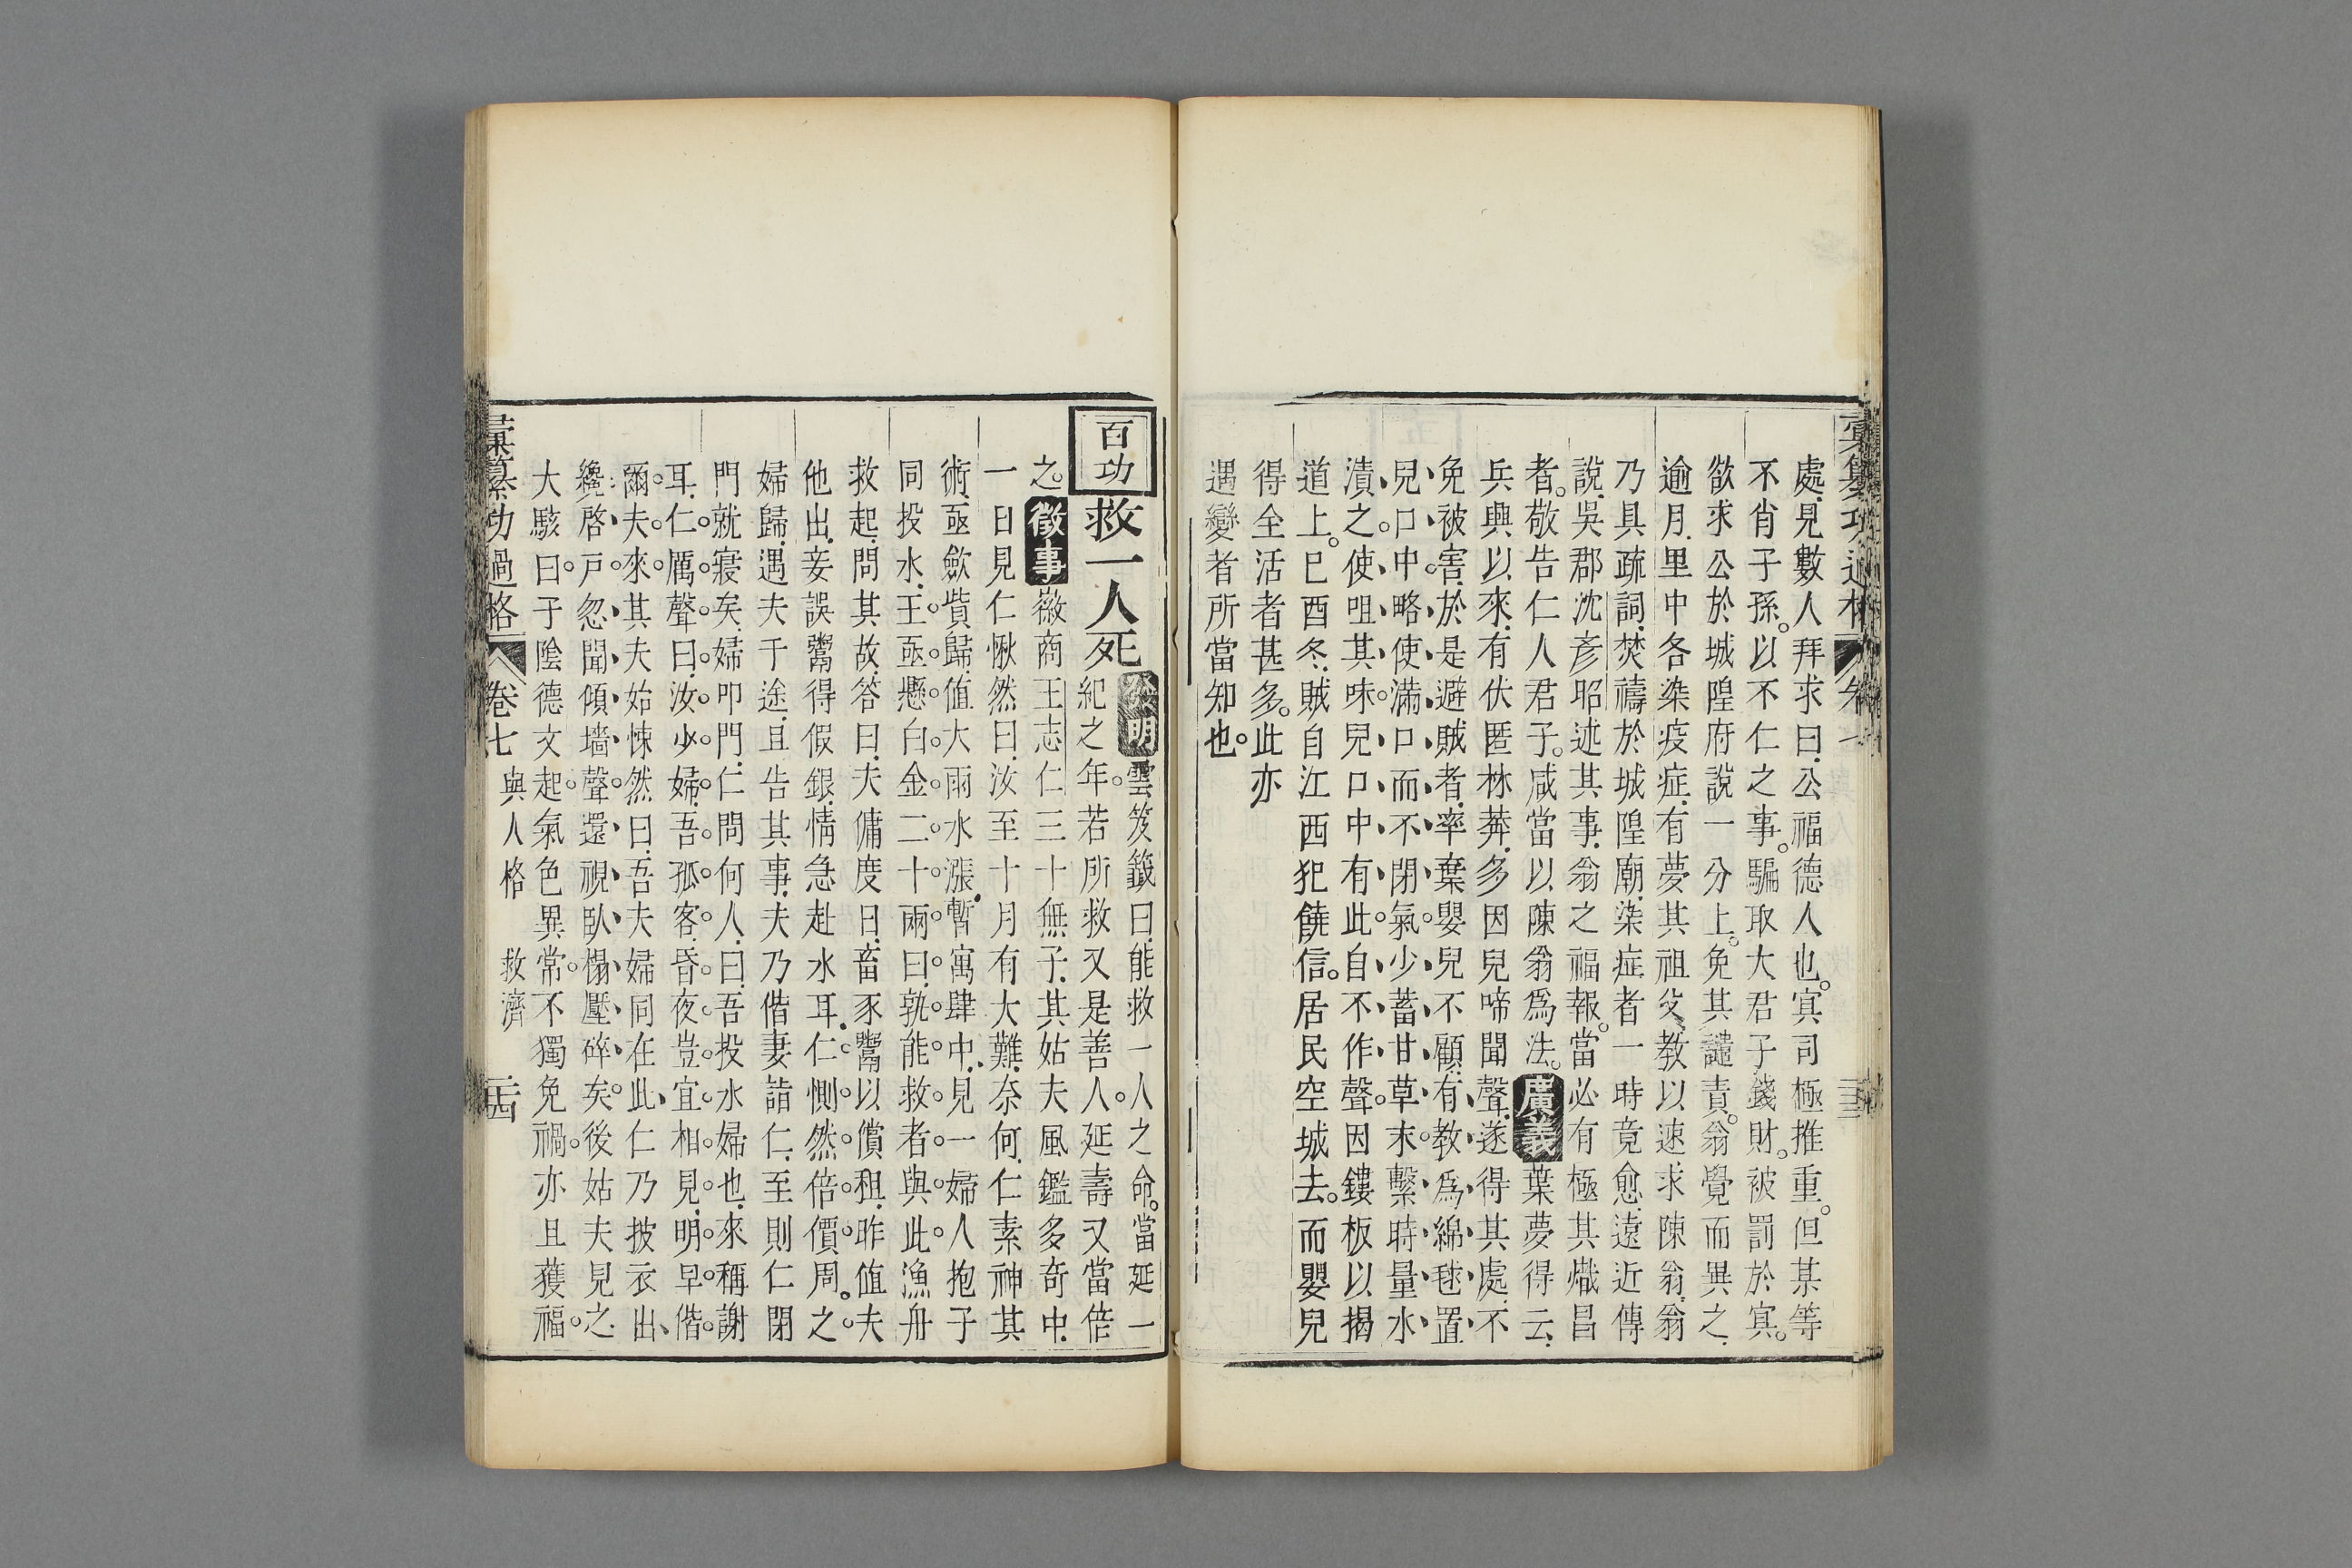 彙纂功過格
處見數人拜求曰公福德人也冥司極推重但某等
不肖子孫以不仁之事騙取大君子錢財被罰於冥
欲求公於城隍府說一分上免其譴責翁覺而異之
逾月里中各染疫症有夢其祖父教以速求陳翁翁
乃具疏詞焚禱於城隍廟染症者一時竟愈遠近傳
說吳郡沈彥昭述其事翁之福報當必有極其熾昌
者敬告仁人君子咸當以陳翁爲法廣義葉夢得云
兵興以來有伏匿林莽多因兒啼聞聲遂得其處不
免被害於是避賊者率棄嬰兒不顧有教爲綿毬置
兒口中略使滿口而不閉氣少蓄甘草末繫時量水
漬之使咀其味兒口中有此自不作聲因鏤板以揭
道上巳酉冬賊自江西犯饒信居民空城去而嬰兒
得全活者甚多此亦
遇變者所當知也
百功
救一人死
發明雲笈籤曰能救一人之命當延一
紀之年若所救又是善人延壽又當倍
之徵事徽商王志仁三十無子其姑夫風鑑多奇中
一日見仁愀然曰汝至十月有大難奈何仁素神其
術亟歛貲歸值大雨水漲暫寓肆中見一婦人抱子
同投水王亟懸白金二十兩曰孰能救者與此漁舟
救起問其故答曰夫傭度日畜豕鬻以償租昨值夫
他出妾誤鬻得假銀情急赴水耳仁惻然倍價周之
婦歸遇夫于途且告其事夫乃偕妻詣仁至則仁閉
門就寢矣婦叩門仁問何人曰吾投水婦也來稱謝
耳仁厲聲曰汝少婦吾孤客昏夜豈宜相見明早偕
爾夫來其夫始悚然曰吾夫婦同在此仁乃披衣出
纔啓戶忽聞傾墻聲還視臥榻壓碎矣後姑夫見之
大駭曰子陰德文起氣色異常不獨免禍亦且獲福
彙纂功過格 卷七 與人格 救濟 二十四